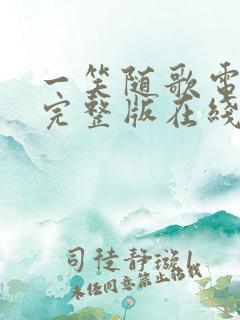 一笑随歌电
完整版在线
司徒静璇 |
未经同意禁止转载